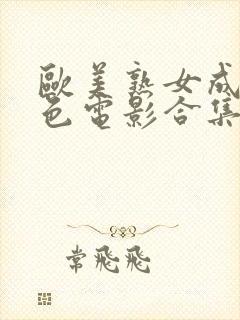 歐美熟女成
色電影合集
常飛飛